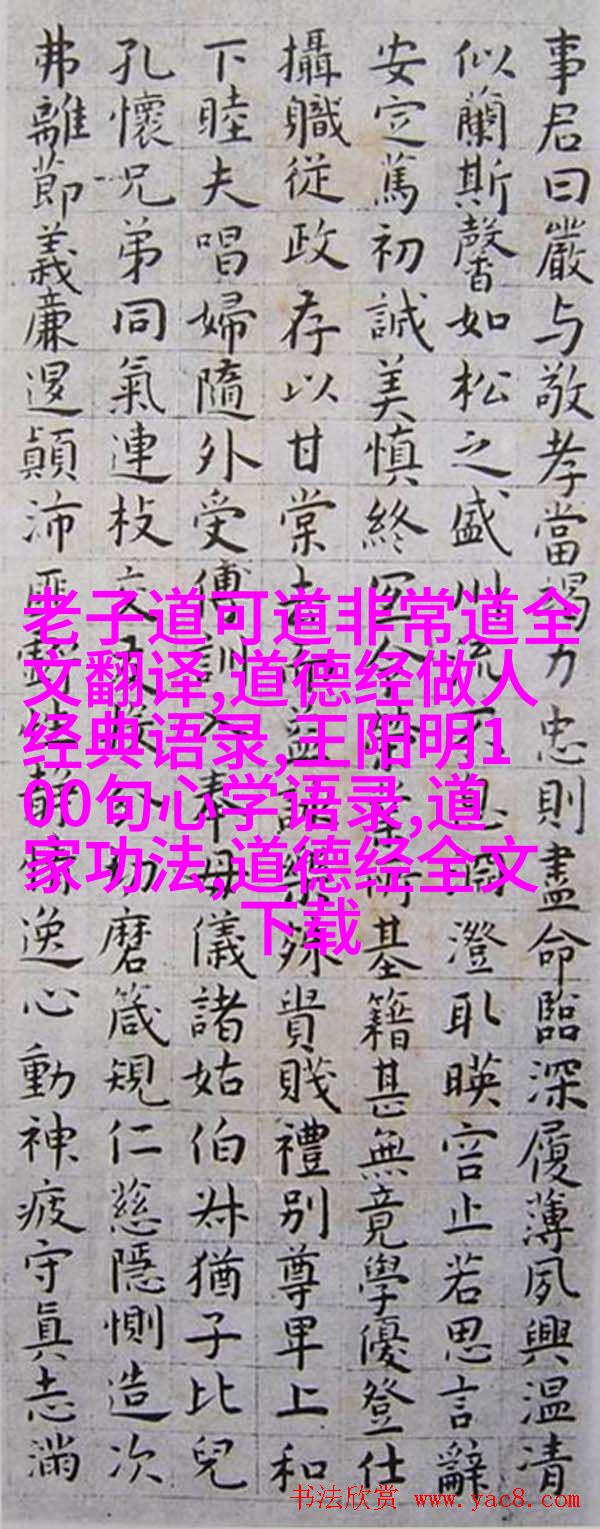 事君曰嚴与敬孝當竭力忠則盡命臨深履薄夙興温清
似蘭斯馨如松之盛川流不息淵澄取暎容止若思言辭
安定篤初誠美慎終宜令基籍甚無竟學優登仕
攝職從政存以甘棠去而益詠樂殊貴賤禮別尊卑上和
下睦夫唱婦隨外受傅訓入奉母儀諸姑伯叔猶子比兒
孔懷兄弟同氣連枝交友切磨箴規仁慈隱惻造次
弗離節義廉退顛沛匪虧性靜情逸心動神疲守真志滿
老子道可道非常道全
文翻译,道德经做人
经典语录,王阳明1
00句心学语录,道
家功法,道德经全文
下载
书法欣赏 www.yac8.com